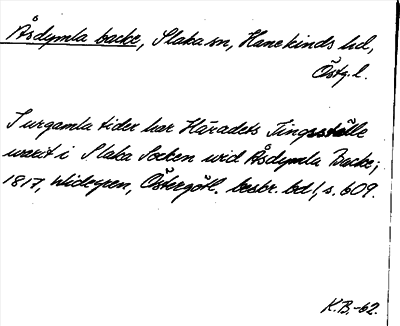 Åsdymla backe, Slaka sn, Hanekinds hd,
Östg. l.
I urgamla tider har Häradets Tingsställe
warit i Slaka Socken wid Åsdymla Backe;
1817, Widegren, Östergötl. beskr. bd 1, s. 609.
K.B.-62.